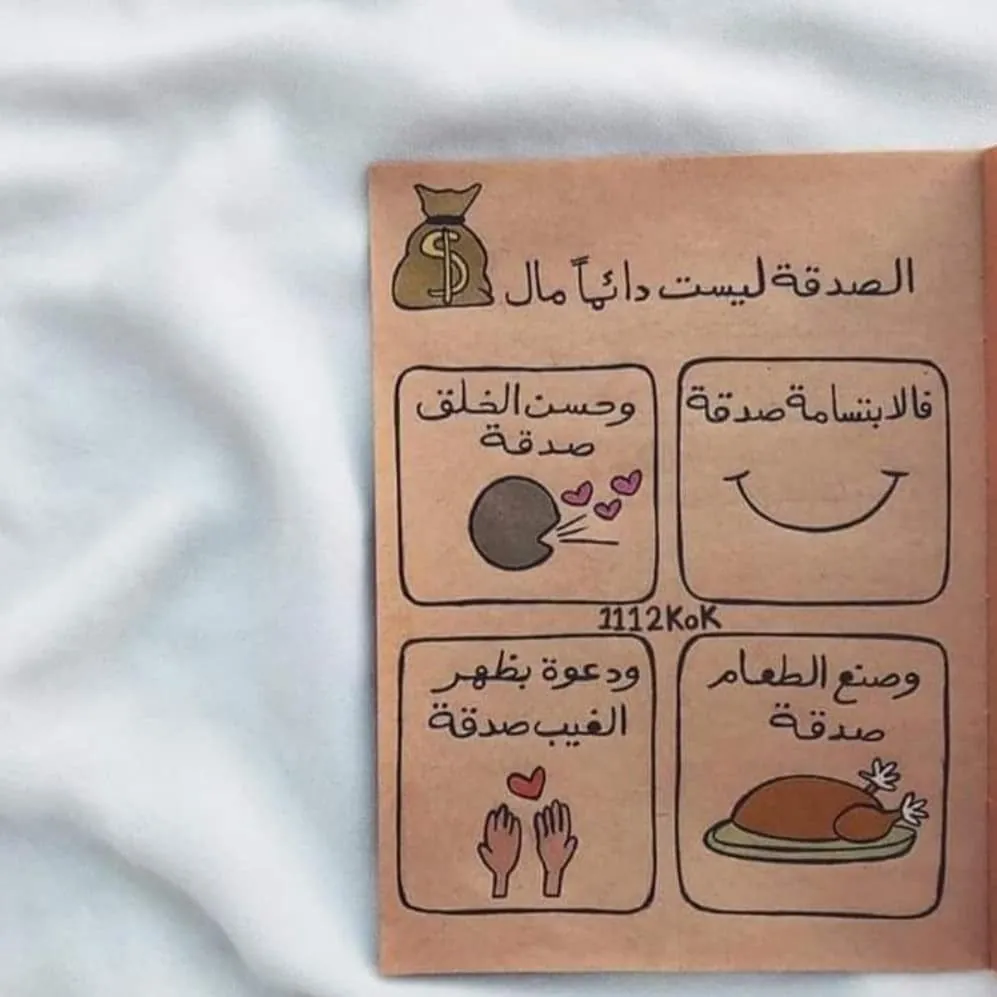 الصدقة ليست دائماً مال
فالابتسامة صدقة
وحسن الخلق
صدقة
1112KoK
وصنع الطعام
صدقة
ودعوة بظهر
الغيب صدقة